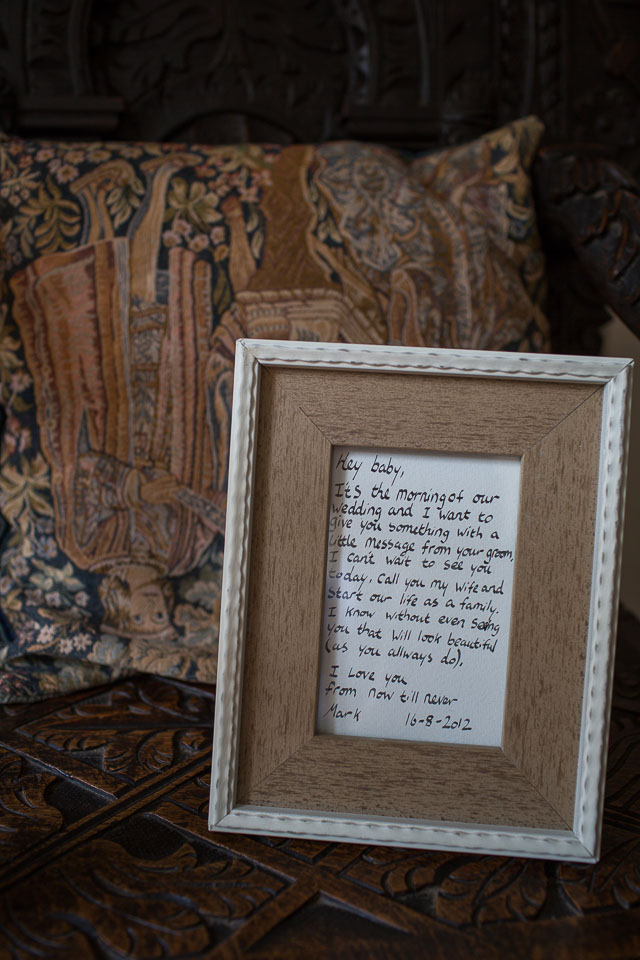 Hey baby,
It's the morning of our
wedding and I want to
give you something with a
little message from your groom,
I can't wait to see you
today. Call you my wife and
start our life as a family.
I know without even seing
you that will look beautiful
(as you allways do),
I Love you
from now till never
Mark 16-8-2012